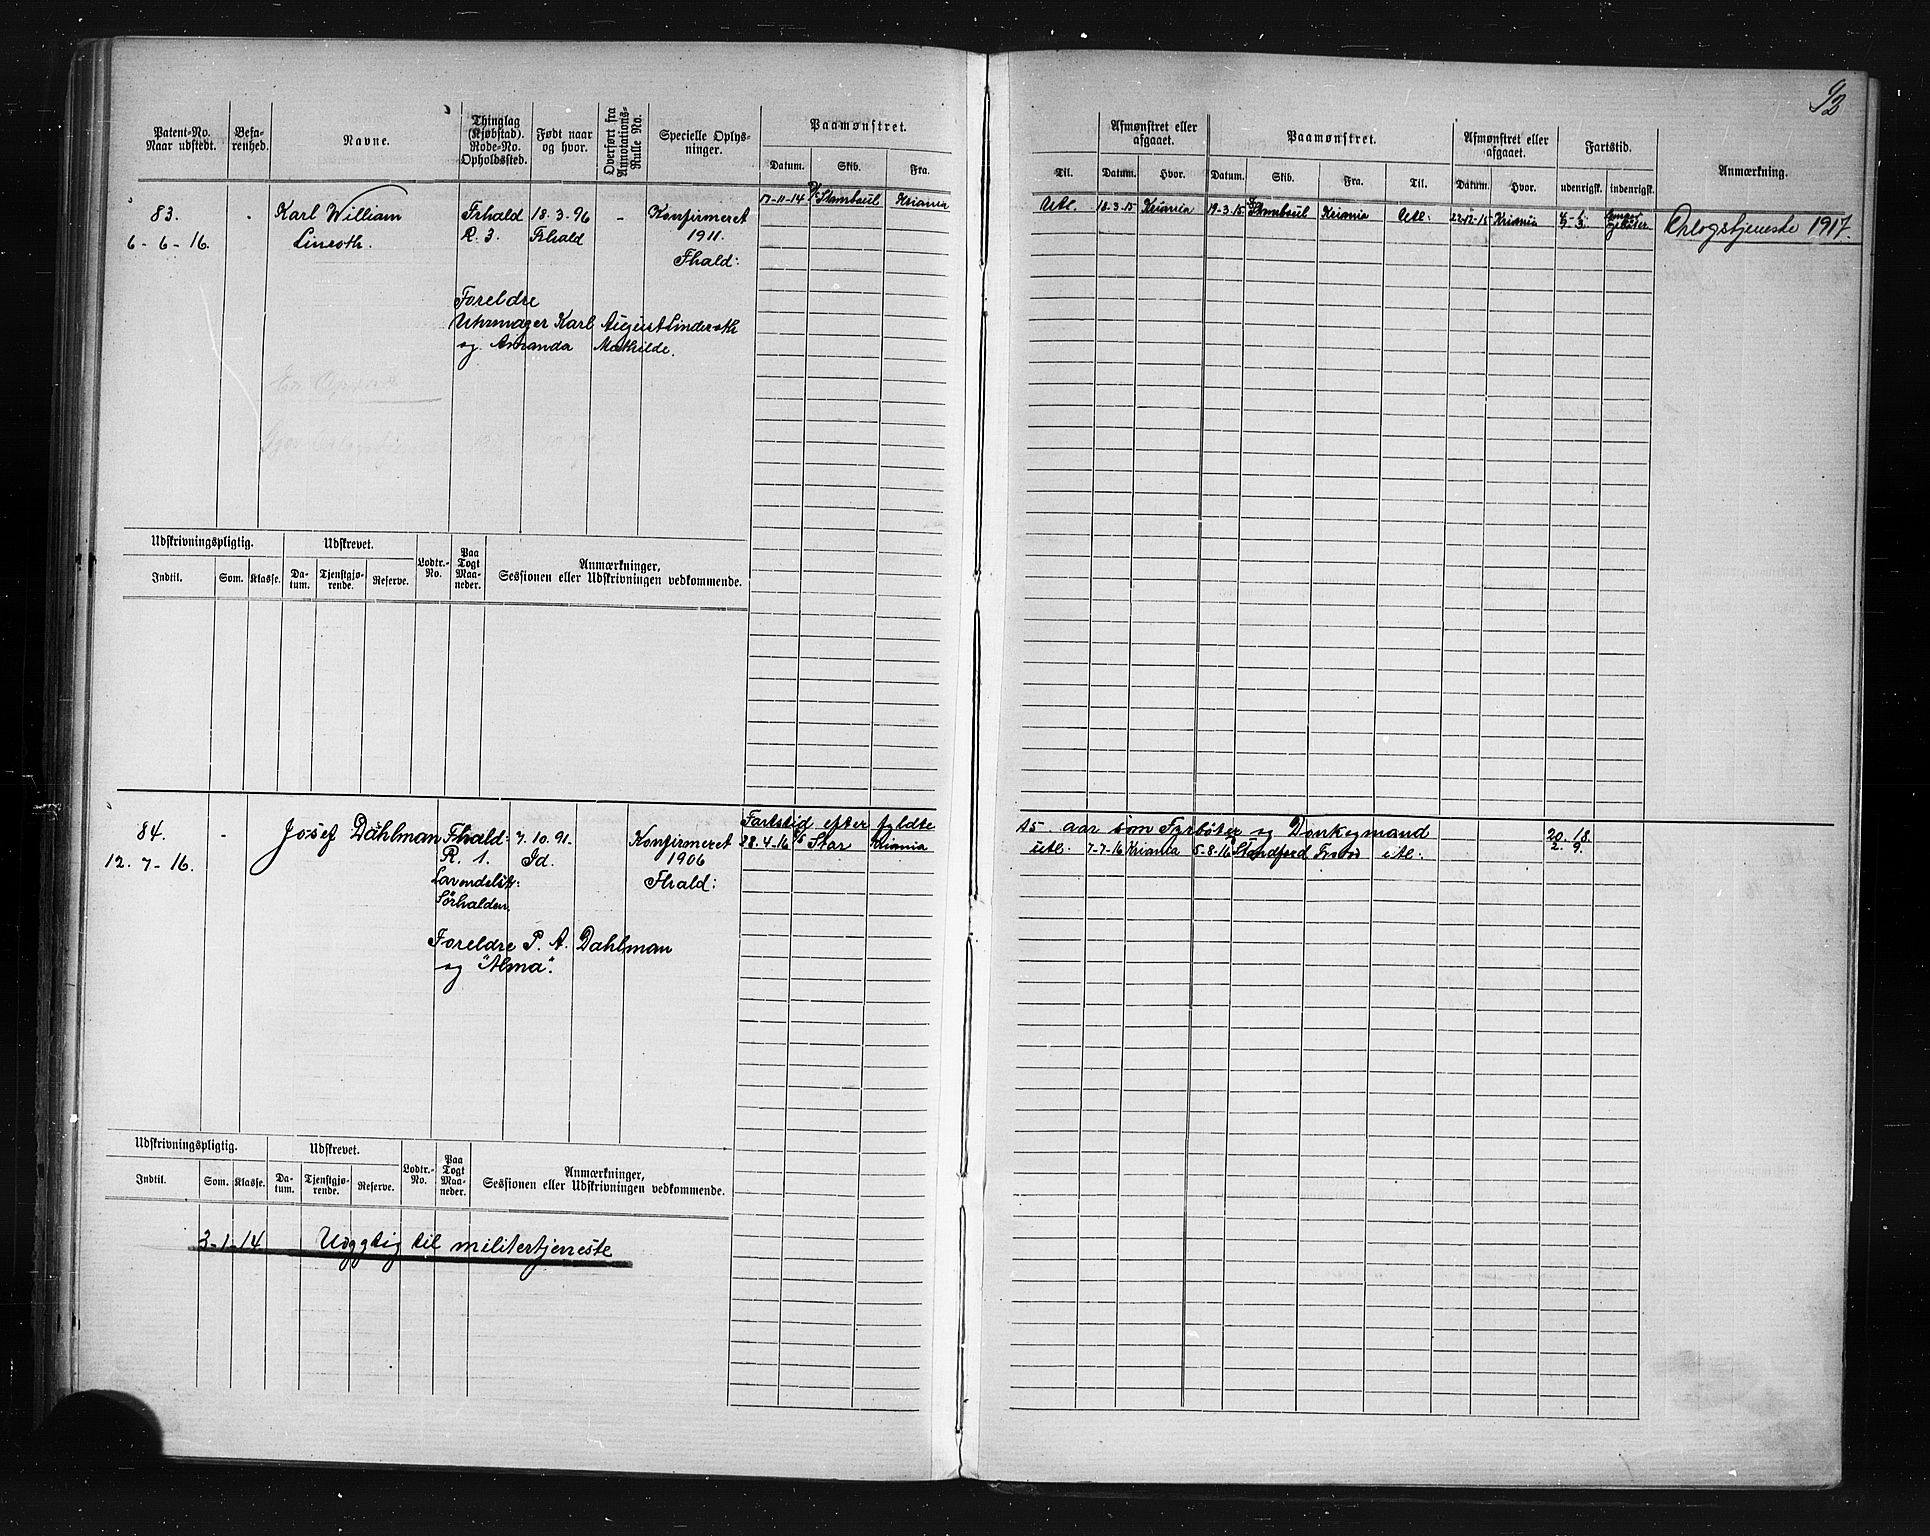 92
Patent-No. Naar udstedt.
Befarenhed.
Navne.
Thinglag (Kjøbstad). Rode-No. Opholdssted.
Født naar og hvor.
Overført fra Annotations-Rulle No.
Specielle Oplysninger.
Paamønstret.
Datum. Skib. Fra.
Til.
Afmønstret eller afgaaet.
Datum. Hvor.
Paamønstret.
Datum. Skib. Fra. Til.
Afmønstret eller afgaaet.
Datum. Hvor.
Fartstid.
udenrigsk. indenrigsk.
Anmærkning.
83.
6-6-16.
Karl William
Linroth.
Frhald
R. 3.
18.3.96
Frhald
-
Konfirmeret
1911.
Fhald:
Foreldre
Uhrmager Karl August Linderoth
og Amanda Mathilde.
17-11-14 D/S Stamboul Kriania
Utl. 18-3-15 Kriania 19-3-15 Stamboul Kriania Utl: 22-12-15 Kriania
Orlogstjeneste 1917.
Udskrivningspligtig.
Indtil. Som. Klasse.
Udskrevet.
Datum. Tjenstgjørende. Reserve.
Lodtr.-No.
Paa Togt Maaneder.
Anmærkninger,
Sessionen eller Udskrivningen vedkommende.
84.
12.7-16.
-
Josef Dahlman
Fhald:
R. 1.
Lavendelstr:
Sörhalden.
7.10.91.
Id.
Konfirmeret
1906
Fhald:
Foreldre P. A. Dahlman
og "Alma".
Fartstid efter fyldte 15 aar som Fyrböter og Donkeymand
28.4-16 D/S Star Kriania utl. 7-7-16 Kriania 5-8-16 Standford utl:
20. 18.
2. 9.
Udskrivningspligtig.
Indtil. Som. Klasse.
Udskrevet.
Datum. Tjenstgjørende. Reserve.
Lodtr.-No.
Paa Togt Maaneder.
Anmærkninger,
Sessionen eller Udskrivningen vedkommende.
3-1-14 til militertjeneste